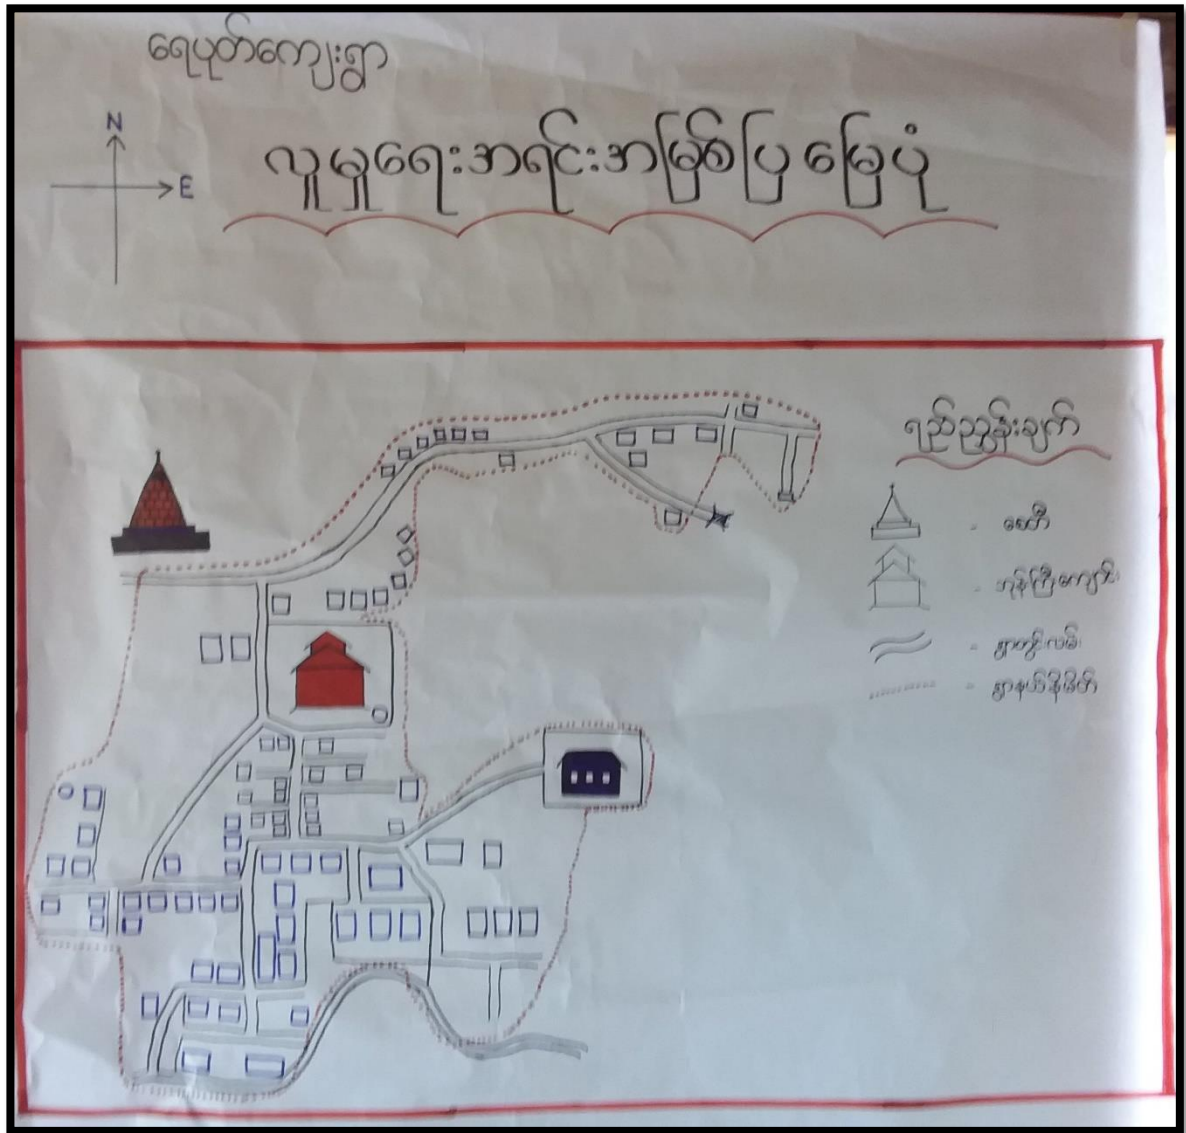 ရေပုတ်ကျေးရွာ
N
E
လူမှုရေးအရင်းအမြစ်ပြ မြေပုံ
ရည်ညွှန်းချက်
- စေတီ
- ဘုန်းကြီးကျောင်း
- ရွာတွင်းလမ်း
- ရွာနယ်နိမိတ်